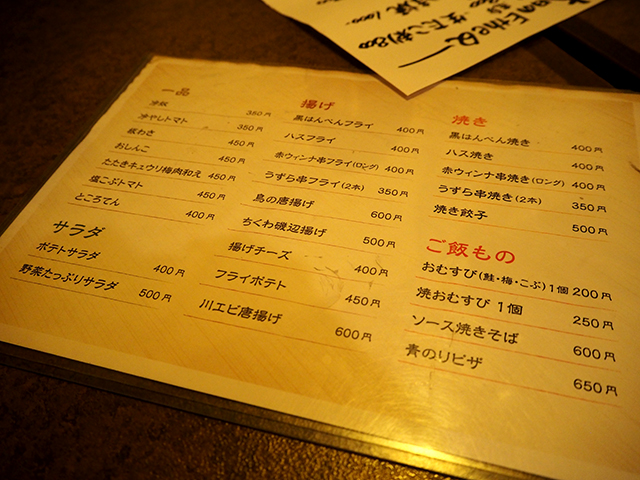 一品
冷奴 350円
冷やしトマト 350円
板わさ 450円
おしんこ 450円
たたきキュウリ梅肉和え 450円
塩こぶトマト 450円
ところてん 400円
サラダ
ポテトサラダ 400円
野菜たっぷりサラダ 500円
揚げ
黒はんぺんフライ 400円
ハスフライ 400円
赤ウィンナ串フライ(ロング) 400円
うずら串フライ(2本) 350円
鳥の唐揚げ 600円
ちくわ磯辺揚げ 500円
揚げチーズ 400円
フライポテト 450円
川エビ唐揚げ 600円
焼き
黒はんぺん焼き 400円
ハス焼き 400円
赤ウィンナ串焼き(ロング) 400円
うずら串焼き(2本) 350円
焼き餃子 500円
ご飯もの
おむすび(鮭・梅・こぶ)1個 200円
焼おむすび 1個 250円
ソース焼きそば 600円
青のりピザ 650円
生たこ刺 800
焼 1000.